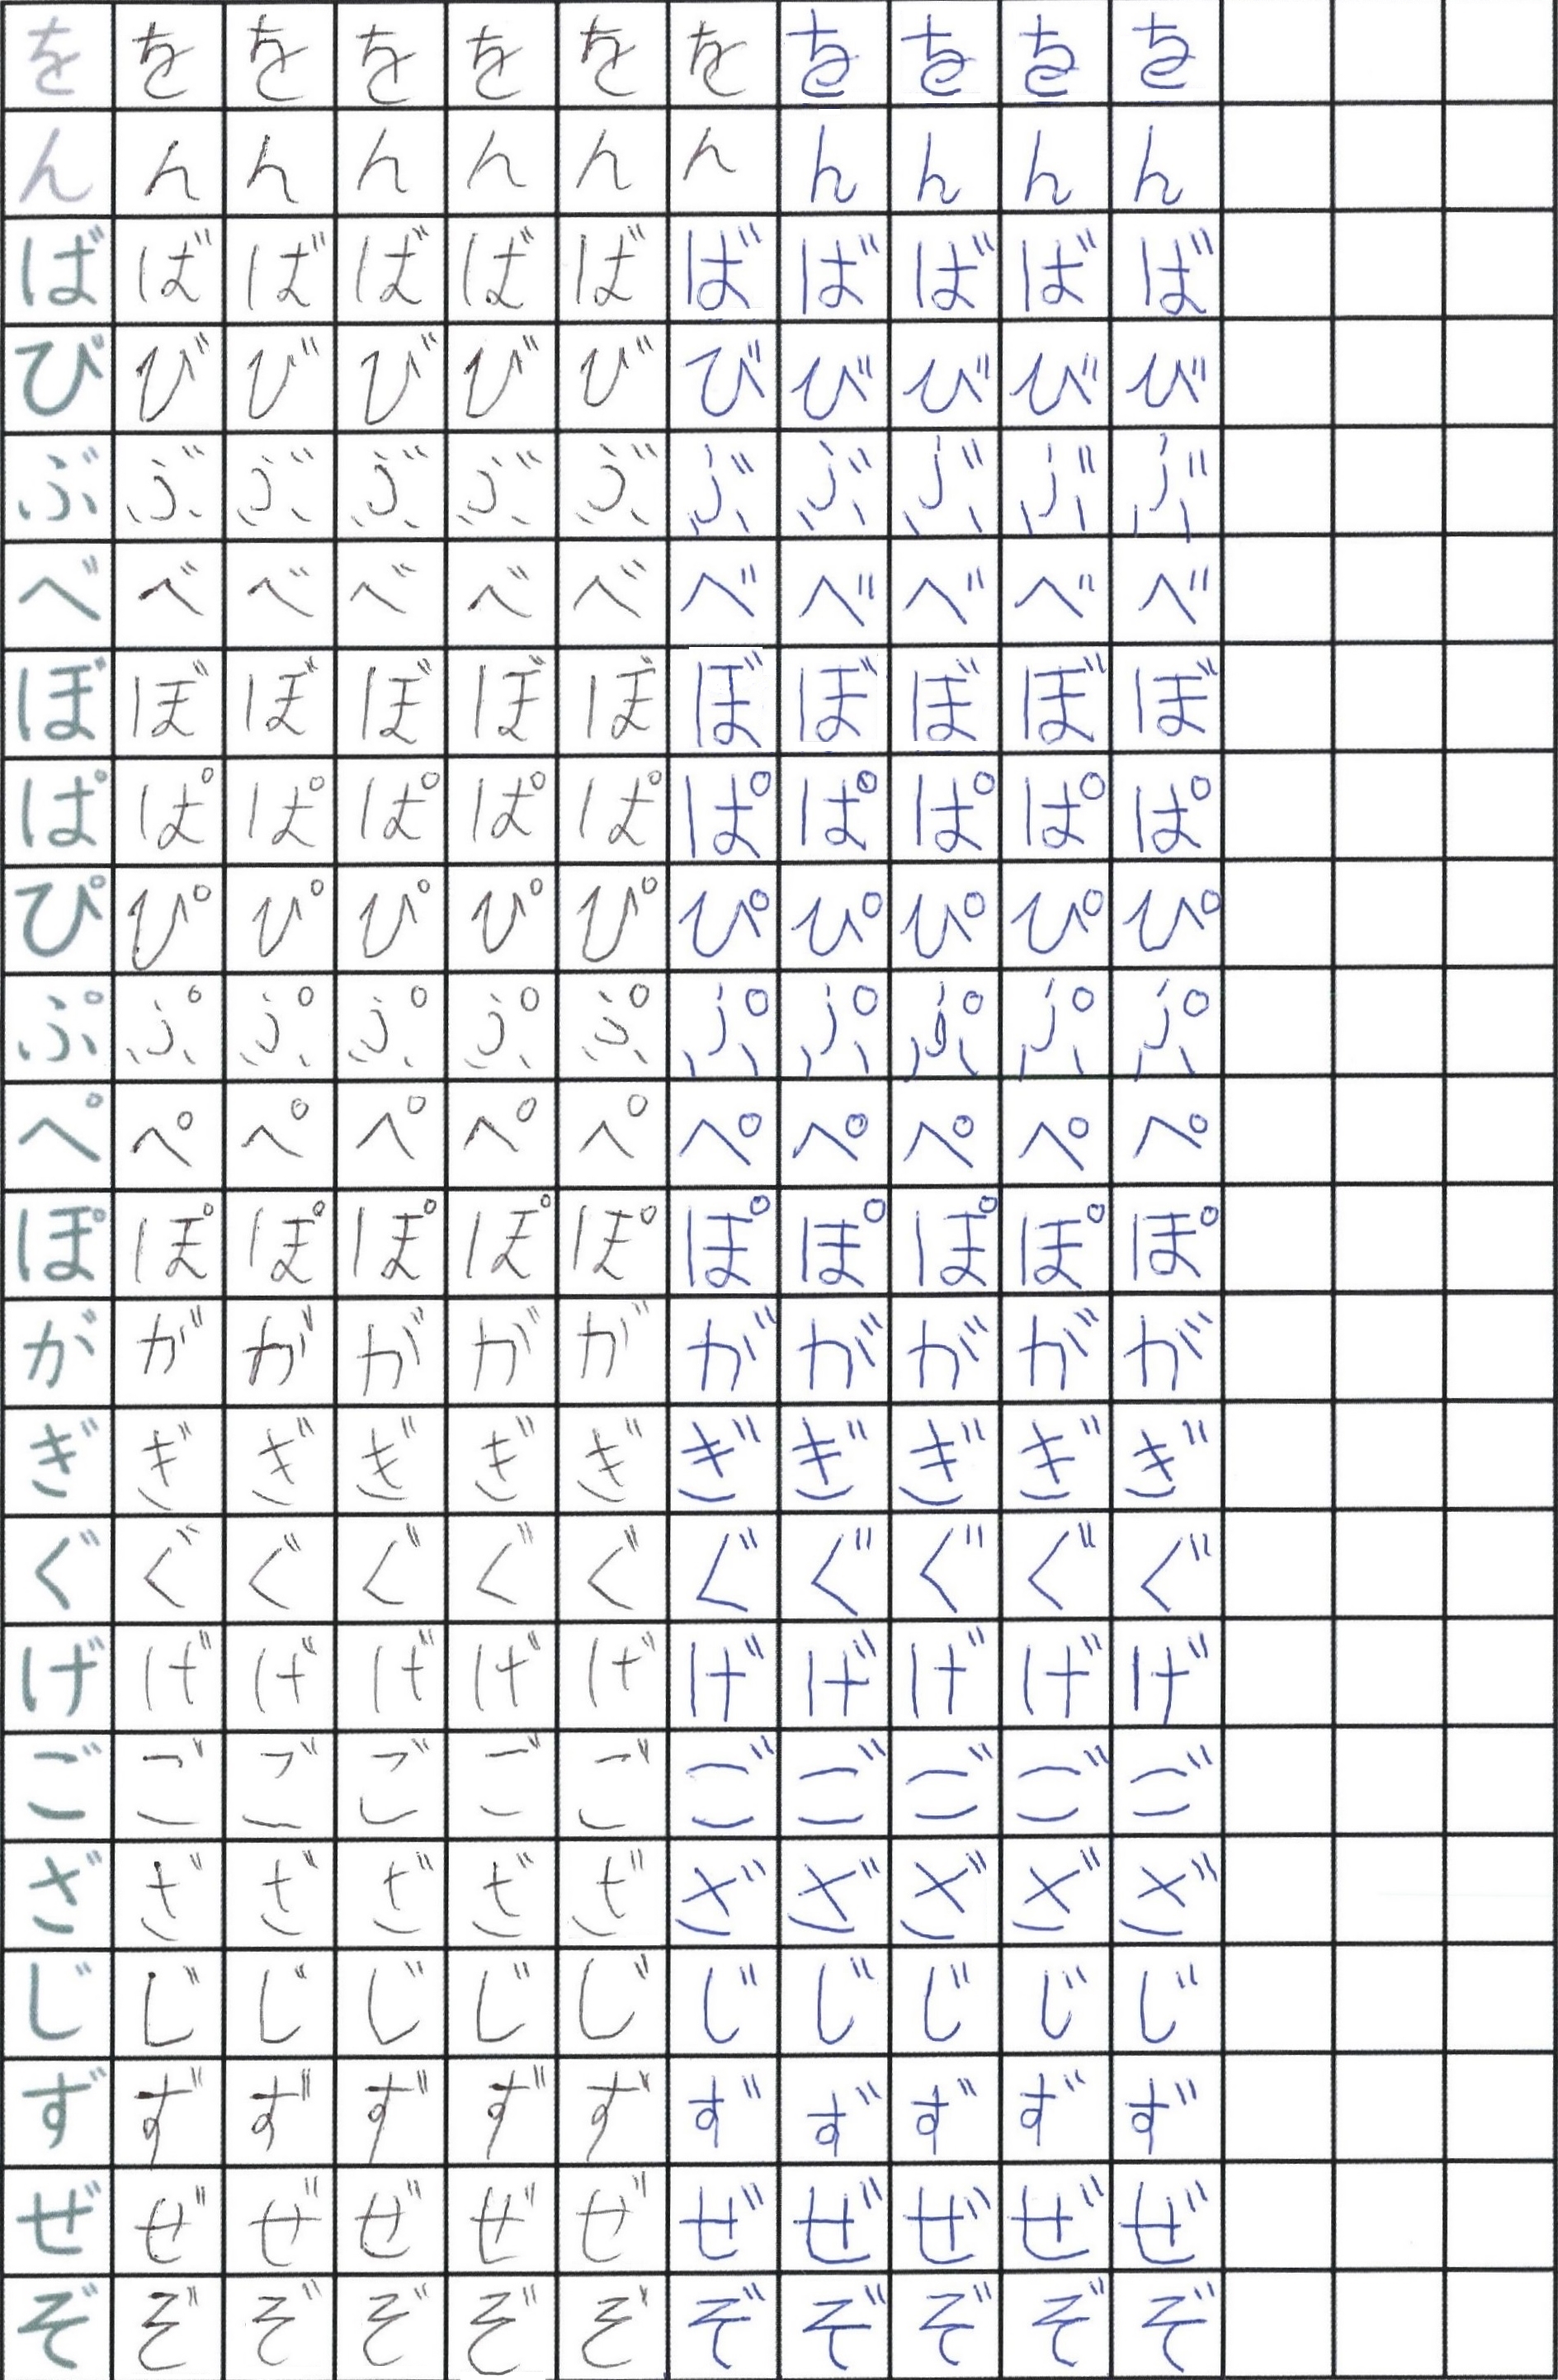 を を を を を を を を を を を
ん ん ん ん ん ん ん ん ん ん ん
ば ば ば ば ば ば ば ば ば ば ば
び び び び び び び び び び び
ぶ ぶ ぶ ぶ ぶ ぶ ぶ ぶ ぶ ぶ ぶ
べ べ べ べ べ べ べ べ べ べ べ
ぼ ぼ ぼ ぼ ぼ ぼ ぼ ぼ ぼ ぼ ぼ
ぱ ぱ ぱ ぱ ぱ ぱ ぱ ぱ ぱ ぱ ぱ
ぴ ぴ ぴ ぴ ぴ ぴ ぴ ぴ ぴ ぴ ぴ
ぷ ぷ ぷ ぷ ぷ ぷ ぷ ぷ ぷ ぷ ぷ
ぺ ぺ ぺ ぺ ぺ ぺ ぺ ぺ ぺ ぺ ぺ
ぽ ぽ ぽ ぽ ぽ ぽ ぽ ぽ ぽ ぽ ぽ
が が が が が が が が が が が
ぎ ぎ ぎ ぎ ぎ ぎ ぎ ぎ ぎ ぎ ぎ
ぐ ぐ ぐ ぐ ぐ ぐ ぐ ぐ ぐ ぐ ぐ
げ げ げ げ げ げ げ げ げ げ げ
ご ご ご ご ご ご ご ご ご ご ご
ざ ざ ざ ざ ざ ざ ざ ざ ざ ざ ざ
じ じ じ じ じ じ じ じ じ じ じ
ず ず ず ず ず ず ず ず ず ず ず
ぜ ぜ ぜ ぜ ぜ ぜ ぜ ぜ ぜ ぜ ぜ
ぞ ぞ ぞ ぞ ぞ ぞ ぞ ぞ ぞ ぞ ぞ